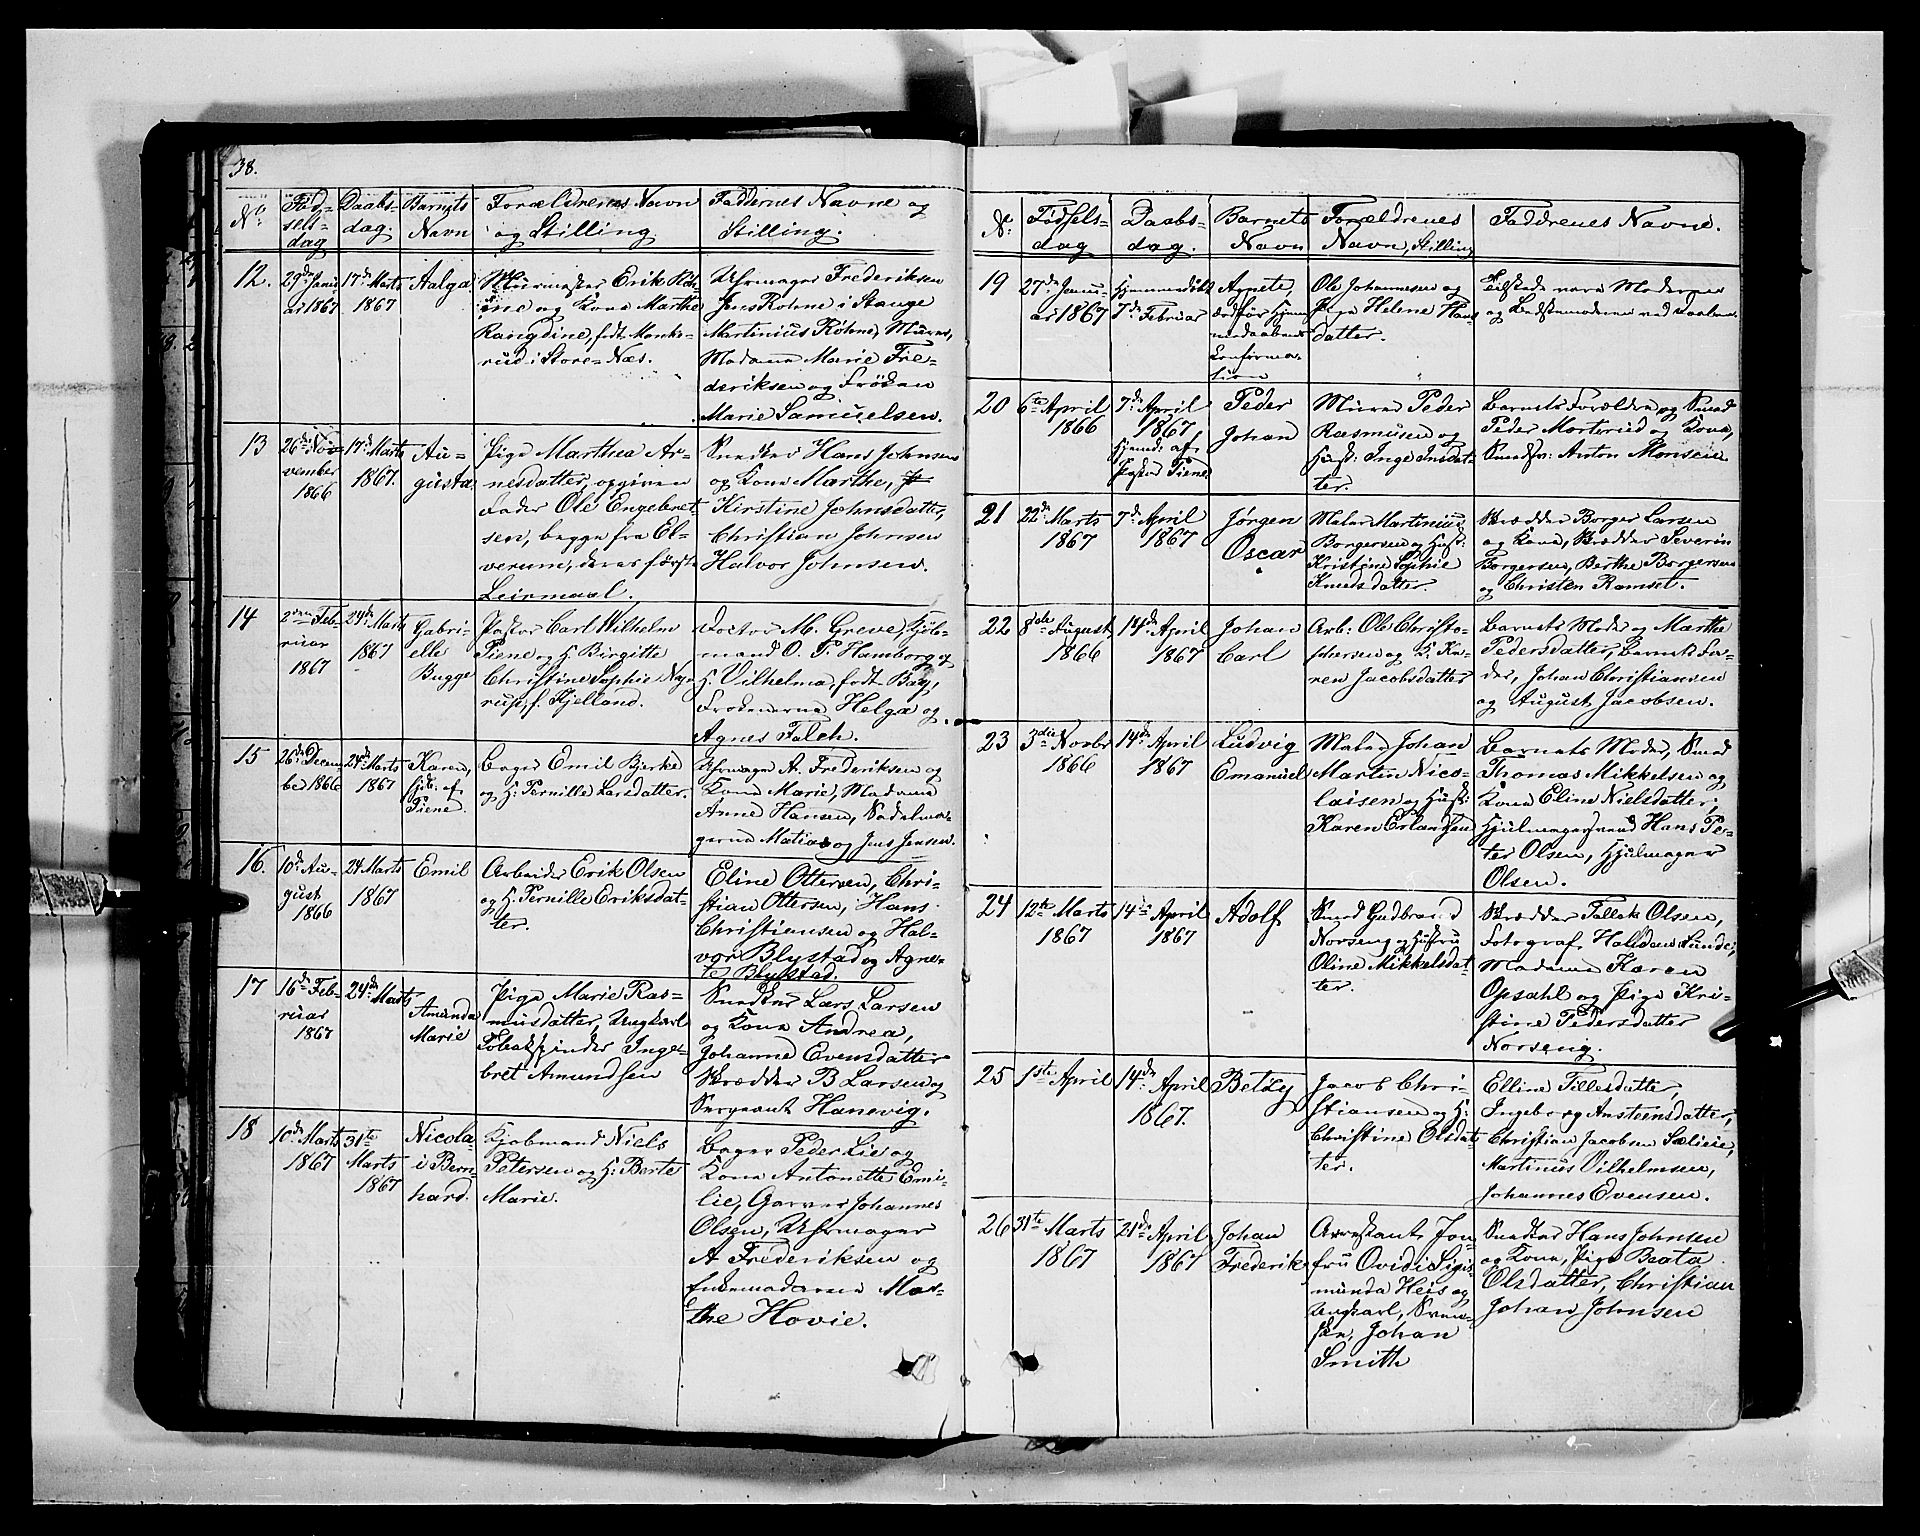 38.
No.
Fødselsdag
Daabsdag.
Barnets Navn
Forældrenes Navn og Stilling.
Faddernes Navne og Stilling.
12.
29de Januar 1867
17de Marts 1867
Aalga
Muurmester Erik
og Kone Marthe
Rangdine, født
rud i Store-Næs.
Uhrmager Frederiksen
Jens Røhne i Stange
Martinius Røhne, Murer,
Madame Marie Fre-
deriksen og Frøken
Marie Samuelsen.
13
26de November 1866
17de Marts 1867.
Augusta.
Pige Marthea Ar-
nesdatter, opgiven
Fader Ole Engebret-
sen, begge fra El-
verum, deres første
Leiermaal.
Snedker Hans Johnsen
og Kone Marthe,
Kirstine Johnsdatter,
Christian Johnsen
Halvor Johnsen.
14
2den Februar 1867
24de Marts 1867
Gabrielle Bugge
Pastor Carl Wilhelm
Tiene og H. Birgitte
Christine Sophie Ny-
rup, f. Kjelland.
Doctor M. Greve, Kjøb-
mand O. P. Hamborg og
H. Vilhelma, født Bay,
Frøkenerne Helga og
Agnes Falch.
15
26de December 1866
24de Marts 1867
Karen, hjd. af Tiene.
Bager Emil Bjerke
og H. Pernille Larsdatter.
Uhrmager A. Frederiksen og
Kone Marie, Madame
Anne Hansen, Sadelma-
gerne Matias og Jens Jensen.
16.
10de August 1866
24 Marts 1867
Emil
Arbeider Erik Olsen
og H. Pernille Eriksdat-
ter.
Eline Ottersen, Chri-
stian Ottersen, Hans
Christiansen og Hal-
vor Blystad og Agne-
te Blystad.
17
16de Februar 1867
24de Marts
Amunda Marie
Pige Marie Ras-
musdatter, Ungkarl
Tobakspinder Inge-
bret Amundsen
Snedker Lars Larsen
og Kone Andrea,
Johanne Evensdatter
Skrædder B Larsen og
Sergeant Hanevig.
18
10de Marts 1867
31te Marts 1867
Nicolai Bernhard.
Kjøbmand Niels
Petersen og H. Berte
Marie.
Bager Peder Lie og
Kone Antonette Emi-
lie, Garver Johannes
Olsen, Uhrmager
A Frederiksen og
Enkemadamen Mar-
the Hovie.
No.
Fødselsdag
Daabsdag.
Barnets Navn
Forældrenes Navn, Stilling
Faddrenes Navne.
19
27de Januar 1867
Hjemmedøbt 7de Februar
Agnete, død før Hjemmedaabens Confirmation
Ole Johannesen og
Pige Helene Hans-
datter.
Tilstede vare Moderen
og Bedstemoderen ved Daaben
20
6te April 1866
7de April 1867
Hjemd. af Pastor Tiene
Peder Johan
Murer Peder
Rasmusen og
Hust: Inger
ter.
Barnets Forældre og Smed
Peder Morterud og Kone,
Smedsv: Anton Monsen
21
22de Marts 1867
7de April 1867
Jørgen Oscar
Maler Martinius
Borgersen og Hust:
Kristine Sophie
Knudsdatter.
Skrædder Borger Larsen
og Kone, Skrædder Severin
Borgersen, Berthe Borgersen
og Christen Ramset.
22
8de August 1866
14de April 1867
Johan Carl
Arb: Ole Christo-
phersen og H. Ka-
ren Jacobsdatter
Barnets Moder og Marthe
Pedersdatter, Barnets Fa-
der, Johan Christiansen
og August Jacobsen.
23
3die Novbr 1866
14de April 1867
Ludvig Emanuel
Maler Johan
Martin Nico-
laisen og Hust:
Karen Erlandsen
Barnets Moder, Smed
Thomas Mikkelsen og
Kone Eline Nielsdatter,
Hjulmagersvend Hans Pe-
ter Olsen, Hjulmager
Olsen.
24
12te Marts 1867
14de April 1867
Adolf
Smed Gudbrand
Norseng og Hustru
Oline Mikkelsdat-
ter.
Skrædder Tallak Olsen,
Fotograf Halfdan Lunde,
Madame Karen
Opsahl og Pige Kri-
stine Pedersdatter
Norseng.
25
1ste April
14de April 1867.
Betzy
Jacob Chri-
stiansen og H:
Christine Olsdat-
ter.
Elline Tillesdatter,
Ingeborg Amsteensdatter,
Christian Jacobsen Sælieie,
Martinus Vilhelmsen,
Johannes Evensen.
26
31te Marts 1867
21de April 1867
Johan Frederik
Arrestant, Jom-
fru Ovidi Sigis-
munda Heis og
Ungkarl, Svens-
ken, Johan
Smith
Snedker Hans Johnsen
og Kone, Pige Beata
Olsdatter, Christian
Johan Johnsen